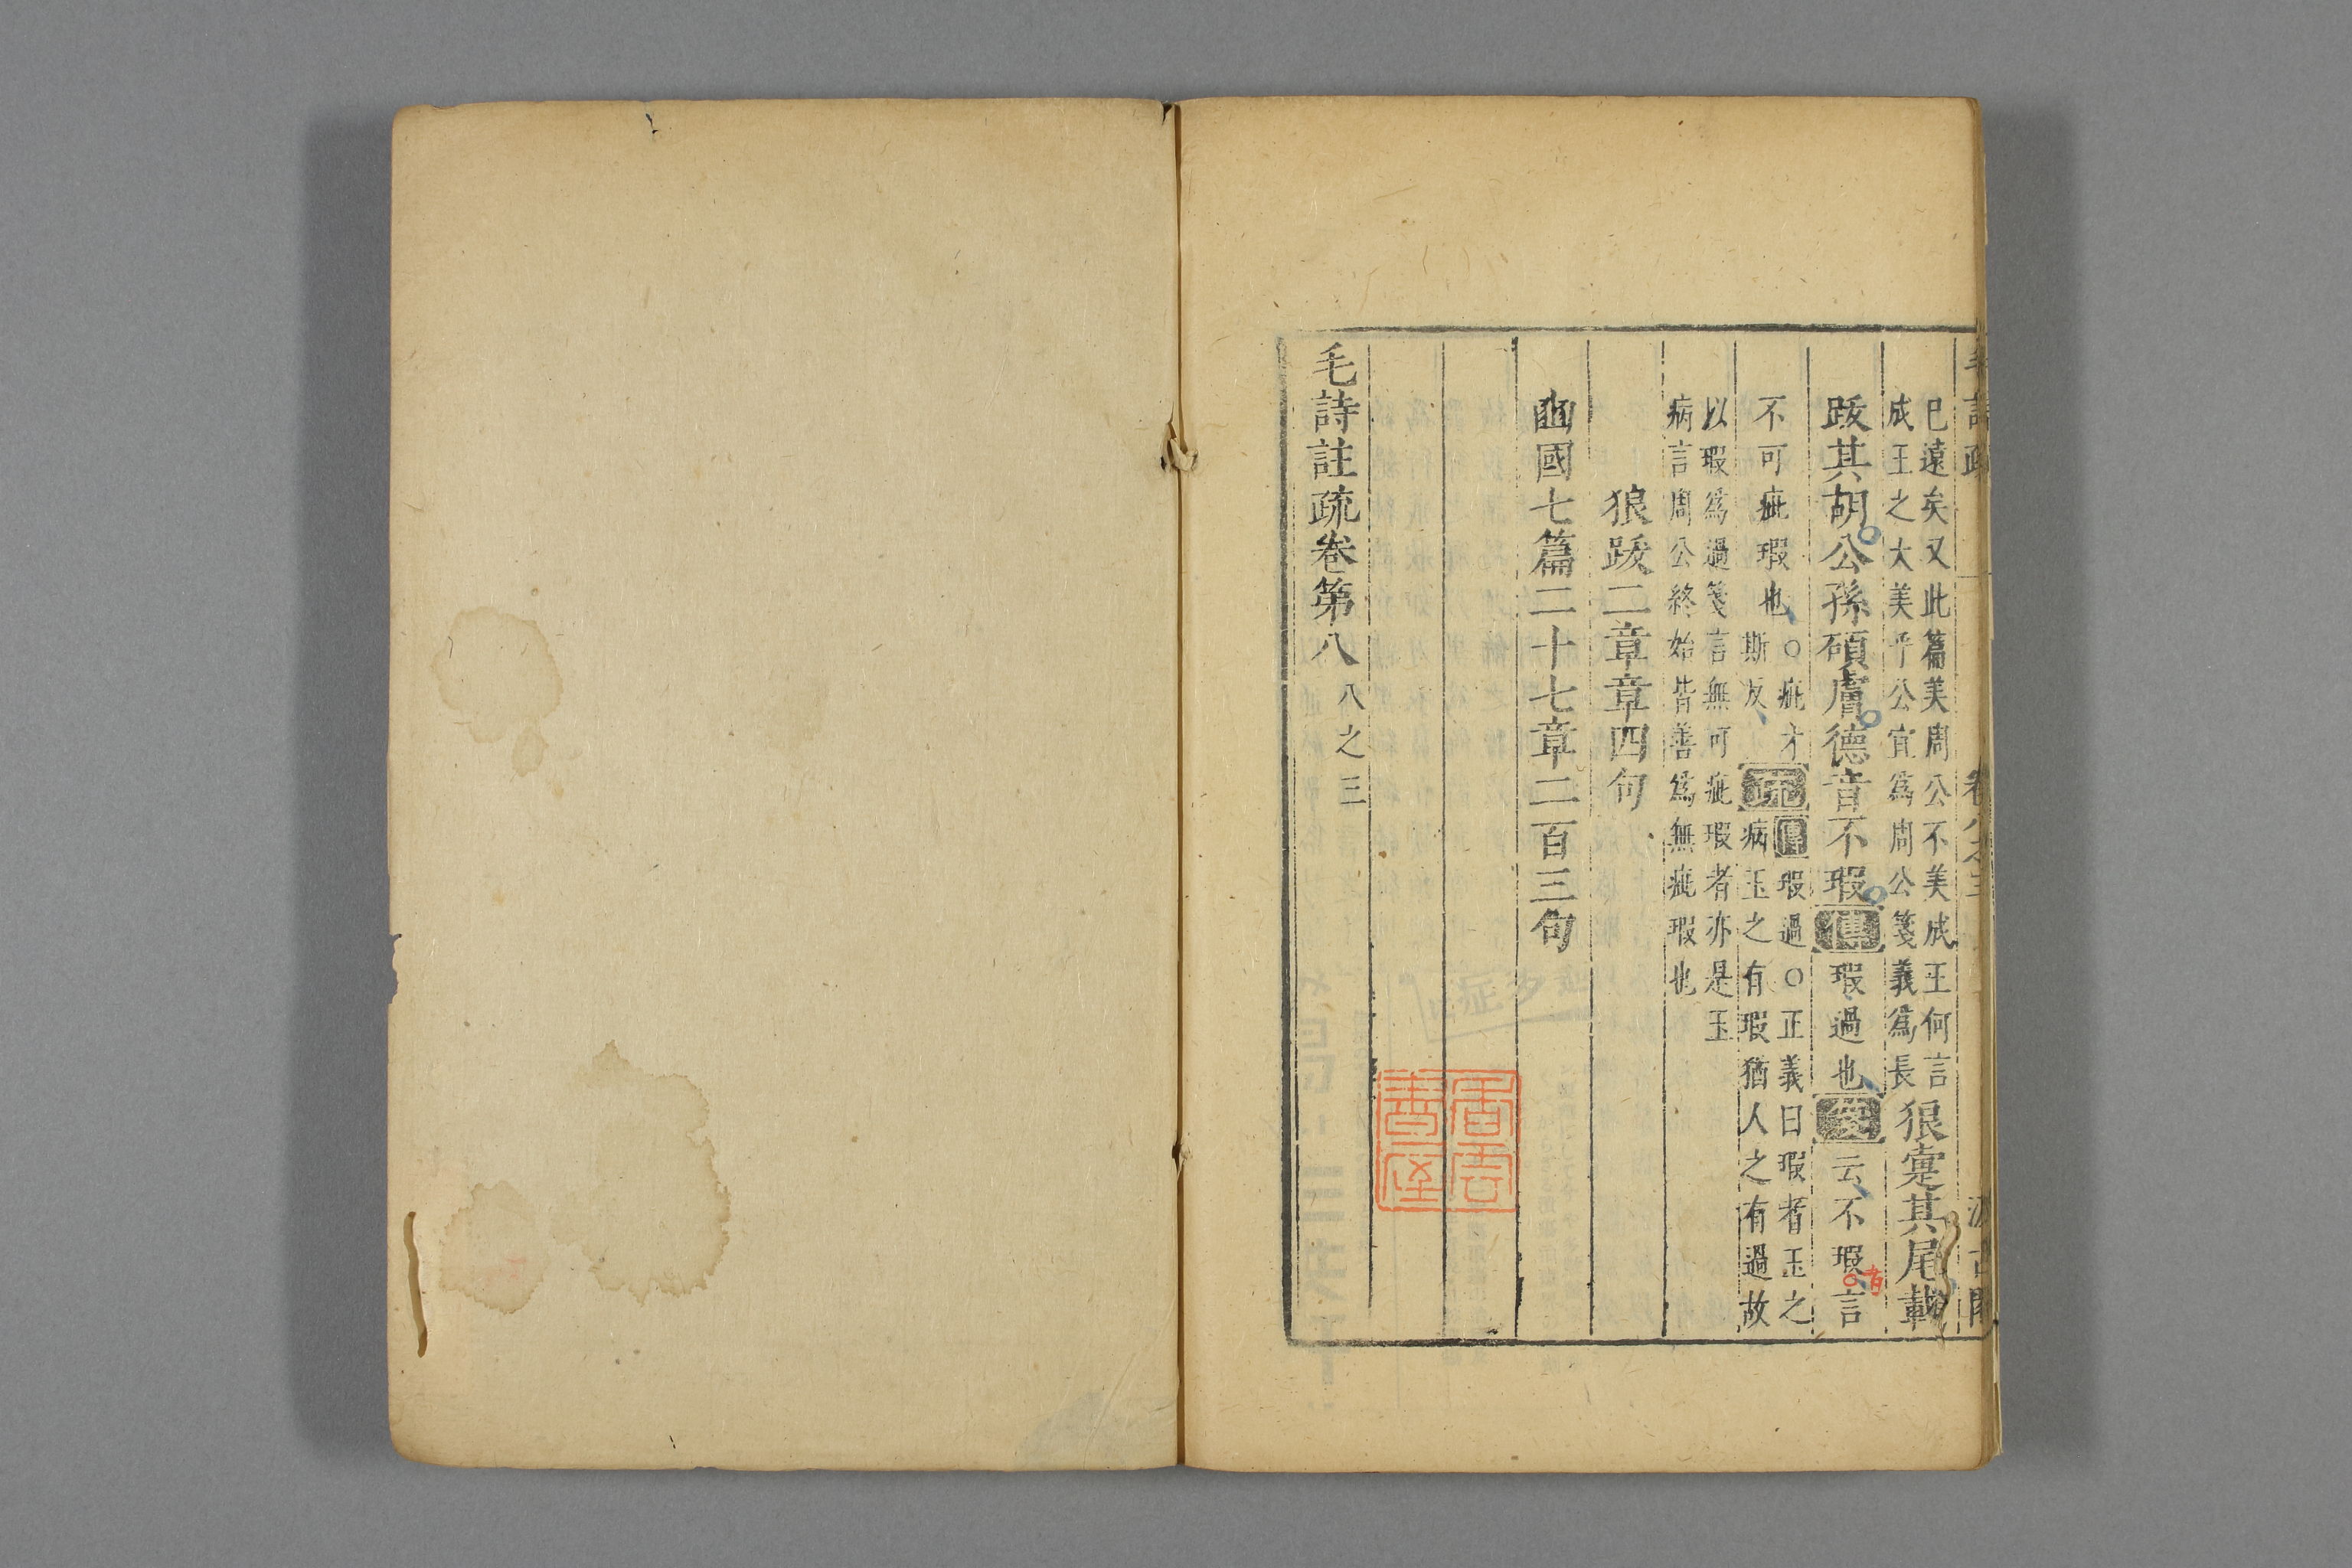 已遠矣又此篇美周公不美成王何言
成王之大美乎公宜爲周公箋義爲長
狼疐其尾載
跋其胡公孫碩膚德音不瑕傳瑕過也箋云不瑕言
者
不可疵瑕也
○疵才
斯反
疏
傳瑕過○正義曰瑕者玉之
病玉之有瑕猶人之有過故
以瑕爲過箋言無可疵瑕者亦是玉
病言周公終始皆善爲無疵瑕也
狼跋二章章四句
豳國七篇二十七章二百三句
毛詩註疏卷第八
八之三